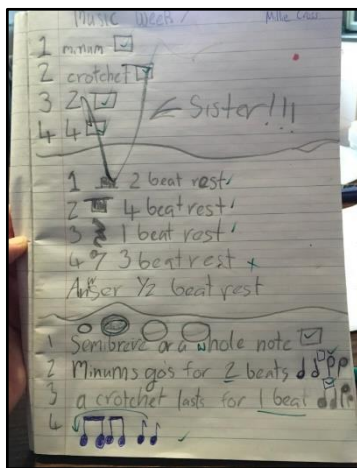 Music Week 1
1 minum
2 crotchet
3 2
4 4
Sister!!!
1 2 beat rest
2 4 beat rest
3 1 beat rest
4 3 beat rest
Anser 1/2 beat rest
1 Semibreve or a whole note
2 Minums gos for 2 beats
3 a crotchet lasts for 1 beat
4